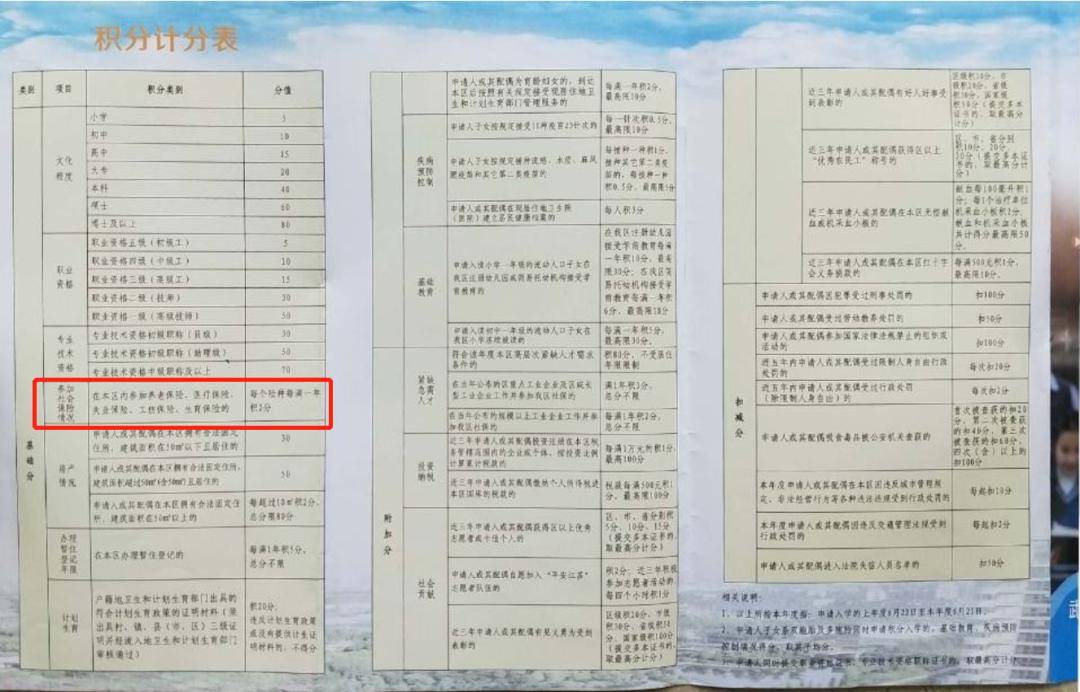 积分计分表
类别 项目 积分类别 分值
基础分
文化
程度
小学 5
初中 10
高中 15
大专 20
本科 40
硕士 60
博士及以上 80
职业
资格
职业资格五级（初级工） 5
职业资格四级（中级工） 10
职业资格三级（高级工） 15
职业资格二级（技师） 30
职业资格一级（高级技师） 50
专业
技术
资格
专业技术资格初级职称（员级） 30
专业技术资格初级职称（助理级） 50
专业技术资格中级职称及以上 70
参加
社会
保险
情况
在本区内参加养老保险、医疗保险、
失业保险、工伤保险、生育保险的
每个险种每满一年
积2分
房产
情况
申请人或其配偶在本区拥有合法固定
住所，建筑面积在50㎡以下且居住的
30
申请人或其配偶在本区拥有合法固定住所，
建筑面积超过50㎡（含50㎡）且居住的
50
申请人或其配偶在本区拥有合法固定住
所，建筑面积在50㎡以上的
每超过10㎡积2分，
总分限80分
办理
暂住
登记
年限
在本区办理暂住登记的
每满1年积5分，
总分不限
计划
生育
户籍地卫生和计划生育部门出具的
符合计划生育政策的证明材料（须
出具村、镇、县（市、区）三级证
明并经流入地卫生和计划生育部门
审核通过）
积20分；
违反计划生育政策
或没有提供计生证
明材料的，不得分
申请人或其配偶为育龄妇女的，到达
本区后按照有关规定接受现居住地卫
生和计划生育部门管理服务的
每满一年积2分，
最高限10分
疾病
预防
控制
申请人子女按规定接种
每一针次积0.5分，
最高限10分
申请人子女按规定接种流感、水痘、麻风
腮疫苗和其它第二类疫苗的
每接种一种积1分，
接种其它第二类疫
苗的，每接种一种
积0.5分，最高限5分
申请人或其配偶在现居住地卫生院
（医院）建立居民健康档案的
每人积3分
基础
教育
申请入读小学一年级的流动人口子女在
我区注册幼儿园或简易托幼机构接受学
前教育的
在我区注册幼儿园
接受学前教育每满
一年积10分，最高
限30分；在我区简
易托幼机构接受学
前教育每满一年积
6分，最高限18分
申请入读初中一年级的流动人口子女在
我区小学连续就读的
每满一年积5分，
最高限30分。
附加分
紧缺
急需
人才
符合该年度本区高层次紧缺人才需求
条件的
积80分，不受居住
年限限制
在当年公布的区重点工业企业及区成长
型工业企业工作并参加我区社保的
满1年积3分，
总分不限
在当年公布的规模以上工业企业工作并参
加我区社保的
每满1年积2分，
总分不限
投资
纳税
近三年申请人或其配偶投资注册在本区税
务管辖范围内的企业或个体，按投资比例
计算累计税款的
每满1万元的积1分，
最高100分
近三年申请人或其配偶缴纳个人所得税进
本区国库的税款的
税款每满500元积1
分，最高限100分
社会
贡献
近三年申请人或其配偶获得区以上优秀
志愿者或十佳个人的
区、市、省分别积
5分、10分、15分
（提交多本证书的，
取最高分计分）
申请人或其配偶自愿加入“平安江苏”
志愿者队伍的
积2分；近三年积极
参加志愿者活动的，
每四个小时积1分
近三年申请人或其配偶有见义勇为受到
表彰的
区级积20分、市级
积30分、省级积
50分、国家级积100分
（提交多本证书的，
取最高分计分）
近三年申请人或其配偶有好人好事受
到表彰的
区级积10分、市
级积20分、省级
积30分、国家级
积50分（提交多本
证书的，取最高分
计分）
近三年申请人或其配偶获得区以上
“优秀农民工”称号的
区、市、省分别
积10分、20分、
30分（提交多本证
书的，取最高分计
分）
近三年申请人或其配偶在本区无偿献
血或机采血小板的
献血每100毫升积1
分；每1个治疗单位
机采血小板积2分，
献血和机采血小板
共计得分最高限50
分。
近三年申请人或其配偶在本区红十字
会义务捐款的
每满500元积1分，
最高限10分。
扣减分
申请人或其配偶因犯罪受过刑事处罚的 扣100分
申请人或其配偶受过劳动教养处罚的 扣50分
申请人或其配偶参加国家法律法规禁止的组织或
活动的
扣100分
近五年内申请人或其配偶受过限制人身自由行政
处罚的
每次扣20分
近五年内申请人或其配偶受过行政处罚的
（除限制人身自由）的
每次扣2分
申请人或其配偶吸食毒品被公安机关查获的
首次被查获的扣20
分，第二次被查获
的扣40分，第三次
被查获的扣60分，
四次（含）以上的
扣100分
本年度申请人或其配偶在本区因违反城市管理规
定、非法经营行为等各种违法违规受到行政处罚的
每起扣10分
本年度申请人或其配偶因违反交通管理法规受到
行政处罚的
每起扣2分
申请人或其配偶进入法院失信人员名单的 扣50分
相关说明：
1、以上所指本年度指：申请入学的上年度6月22日至本年度6月21日；
2、申请人子女系双胞胎及多胞胎同时申请积分入学的，基础教育、疾病预防
控制情况得分，取其平均分。
3、申请人同时提交职业资格证书、专业技术资格职称证书的，取最高分计分